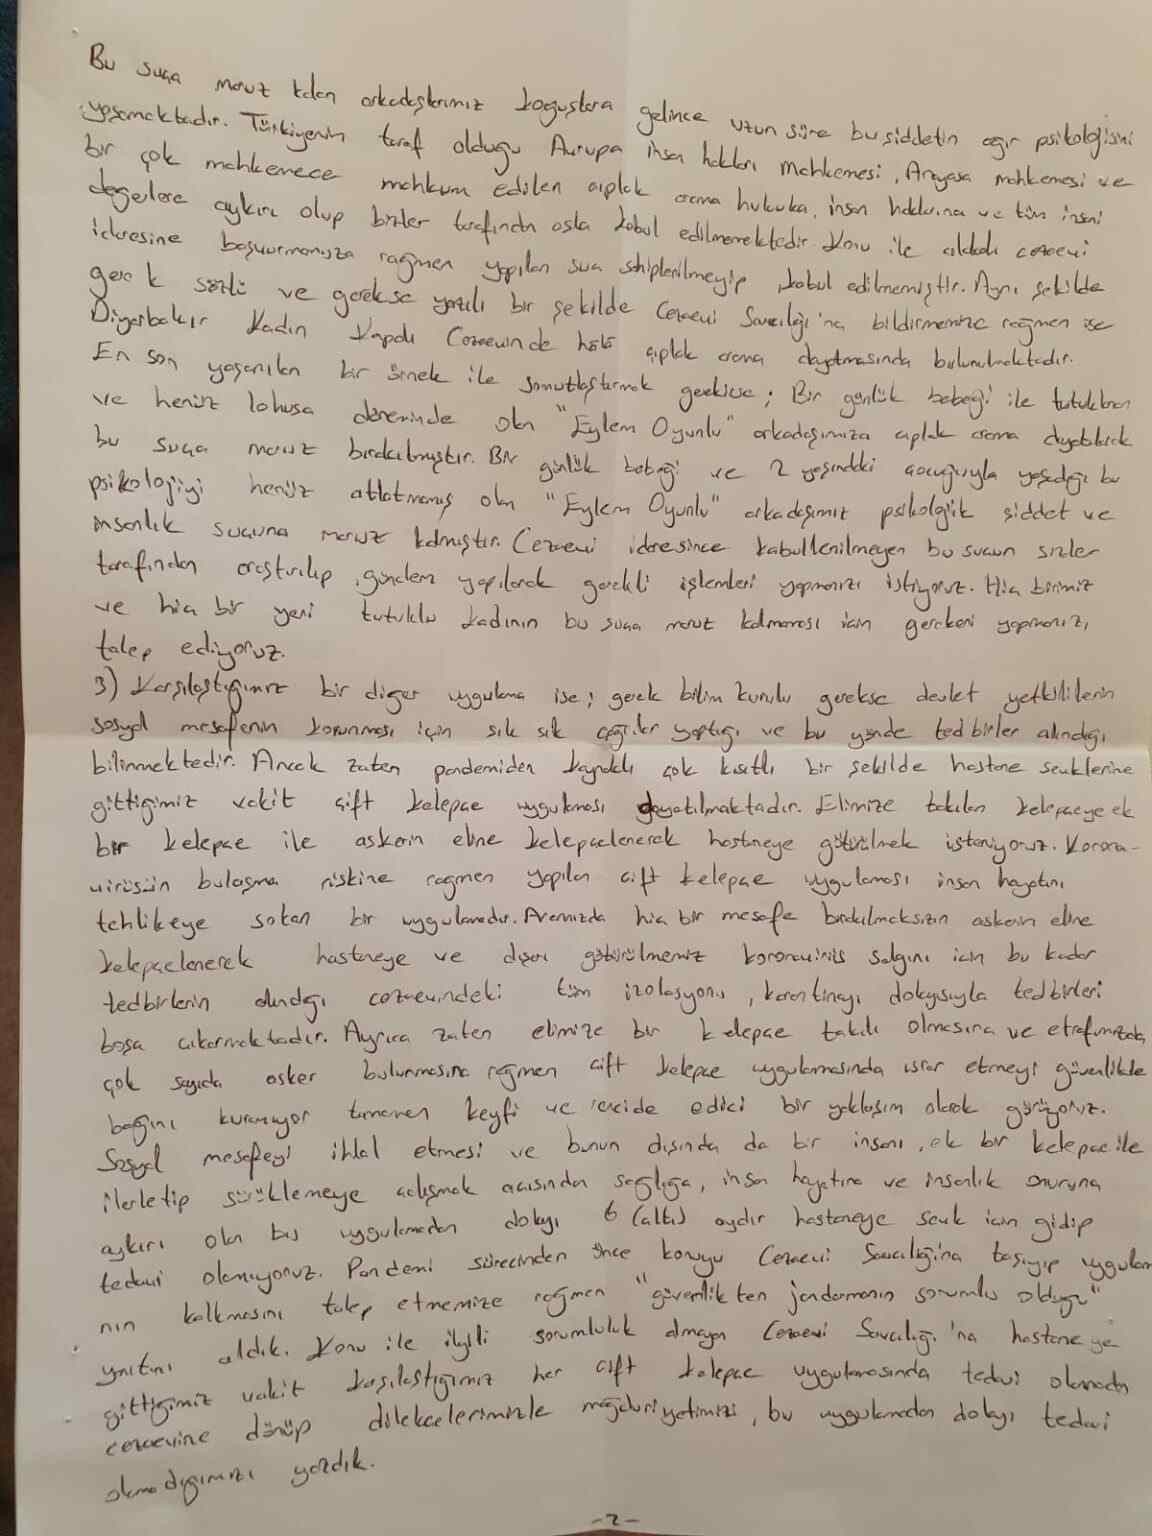 Bu suça maruz kalan arkadaşlarımız koğuşlara gelince uzun süre bu şiddetin ağır psikolojisini
yaşamaktadır. Türkiyenin taraf olduğu Avrupa insan hakları mahkemesi, Anayasa mahkemesi ve
bir çok mahkemece mahkum edilen çıplak arama hukuka, insan haklarına ve tüm insani
değerlere aykırı olup bizler tarafından asla kabul edilmemektedir. Konu ile alakalı cezaevi
idaresine başvurmamıza rağmen yapılan suç sahiplenilmeyip, kabul edilmemiştir. Aynı şekilde
gerek sözlü ve gerekse yazılı bir şekilde Cezaevi Savcılığı'na bildirmemize rağmen ise
Diyarbakır Kadın Kapalı Cezaevinde hâlâ çıplak arama dayatmasında bulunulmaktadır.
En son yaşanılan bir örnek ile somutlaştırmak gerekirse; Bir günlük bebeği ile tutuklanan
ve henüz lohusa döneminde olan "Eylem Oyunlu" arkadaşımıza çıplak arama dayatılarak
bu suça maruz bırakılmıştır. Bir günlük bebeği ve 2 yaşındaki çocuğuyla yaşadığı bu
psikolojiyi henüz atlatmamış olan "Eylem Oyunlu" arkadaşımız psikolojik şiddet ve
insanlık suçuna maruz kalmıştır. Cezaevi idaresince kabullenilmeyen bu suçun sizler
tarafından araştırılıp, gündem yapılarak gerekli işlemleri yapmanızı istiyoruz. Hiç birimiz
ve hiç bir yeni tutuklu kadının bu suça maruz kalmaması için gerekeni yapmanızı,
talep ediyoruz.
3) Karşılaştığımız bir diğer uygulama ise; gerek bilim kurulu gerekse devlet yetkililerin
sosyal mesafenin korunması için sık sık çağrılar yaptığı ve bu yönde tedbirler alındığı
bilinmektedir. Ancak zaten pandemiden kaynaklı çok kısıtlı bir şekilde hastane sevklerine
gittiğimiz vakit çift kelepçe uygulaması dayatılmaktadır. Elimize takılan kelepçeye ek
bir kelepçe ile askerin eline kelepçelenerek hastaneye götürülmek isteniyoruz. Korona-
virüsün bulaşma riskine rağmen yapılan çift kelepçe uygulaması insan hayatını
tehlikeye sokan bir uygulamadır. Aramızda hiç bir mesafe bırakılmaksızın askerin eline
kelepçelenerek hastaneye ve dışarı götürülmemiz koronavirüs salgını için bu kadar
tedbirlerin alındığı cezaevindeki tüm izolasyonu, karantinayı dolayısıyla tedbirleri
boşa çıkarmaktadır. Ayrıca zaten elimize bir kelepçe takılı olmasına ve etrafımızda
çok sayıda asker bulunmasına rağmen çift kelepçe uygulamasında ısrar etmeyi güvenlikle
bağını kuramıyor tamamen keyfi ve rencide edici bir yaklaşım olarak görüyoruz.
Sosyal mesafeyi ihlal etmesi ve bunun dışında da bir insanı, ek bir kelepçe ile
ilerletip sürüklemeye çalışmak açısından sağlığa, insan hayatına ve insanlık onuruna
aykırı olan bu uygulamadan dolayı 6 (altı) aydır hastaneye sevk için gidip
tedavi olamıyoruz. Pandemi sürecinden önce konuyu Cezaevi Savcılığı'na taşıyıp uygulama
nın kalkmasını talep etmemize rağmen "güvenlikten jandarmanın sorumlu olduğu"
yanıtını aldık. Konu ile ilgili sorumluluk almayan Cezaevi Savcılığı'na hastaneye
gittiğimiz vakit karşılaştığımız her çift kelepçe uygulamasında tedavi olamadan
cezaevine dönüp dilekçelerimizle mağduriyetimizi, bu uygulamadan dolayı tedavi
olamadığımızı yazdık.
-2-